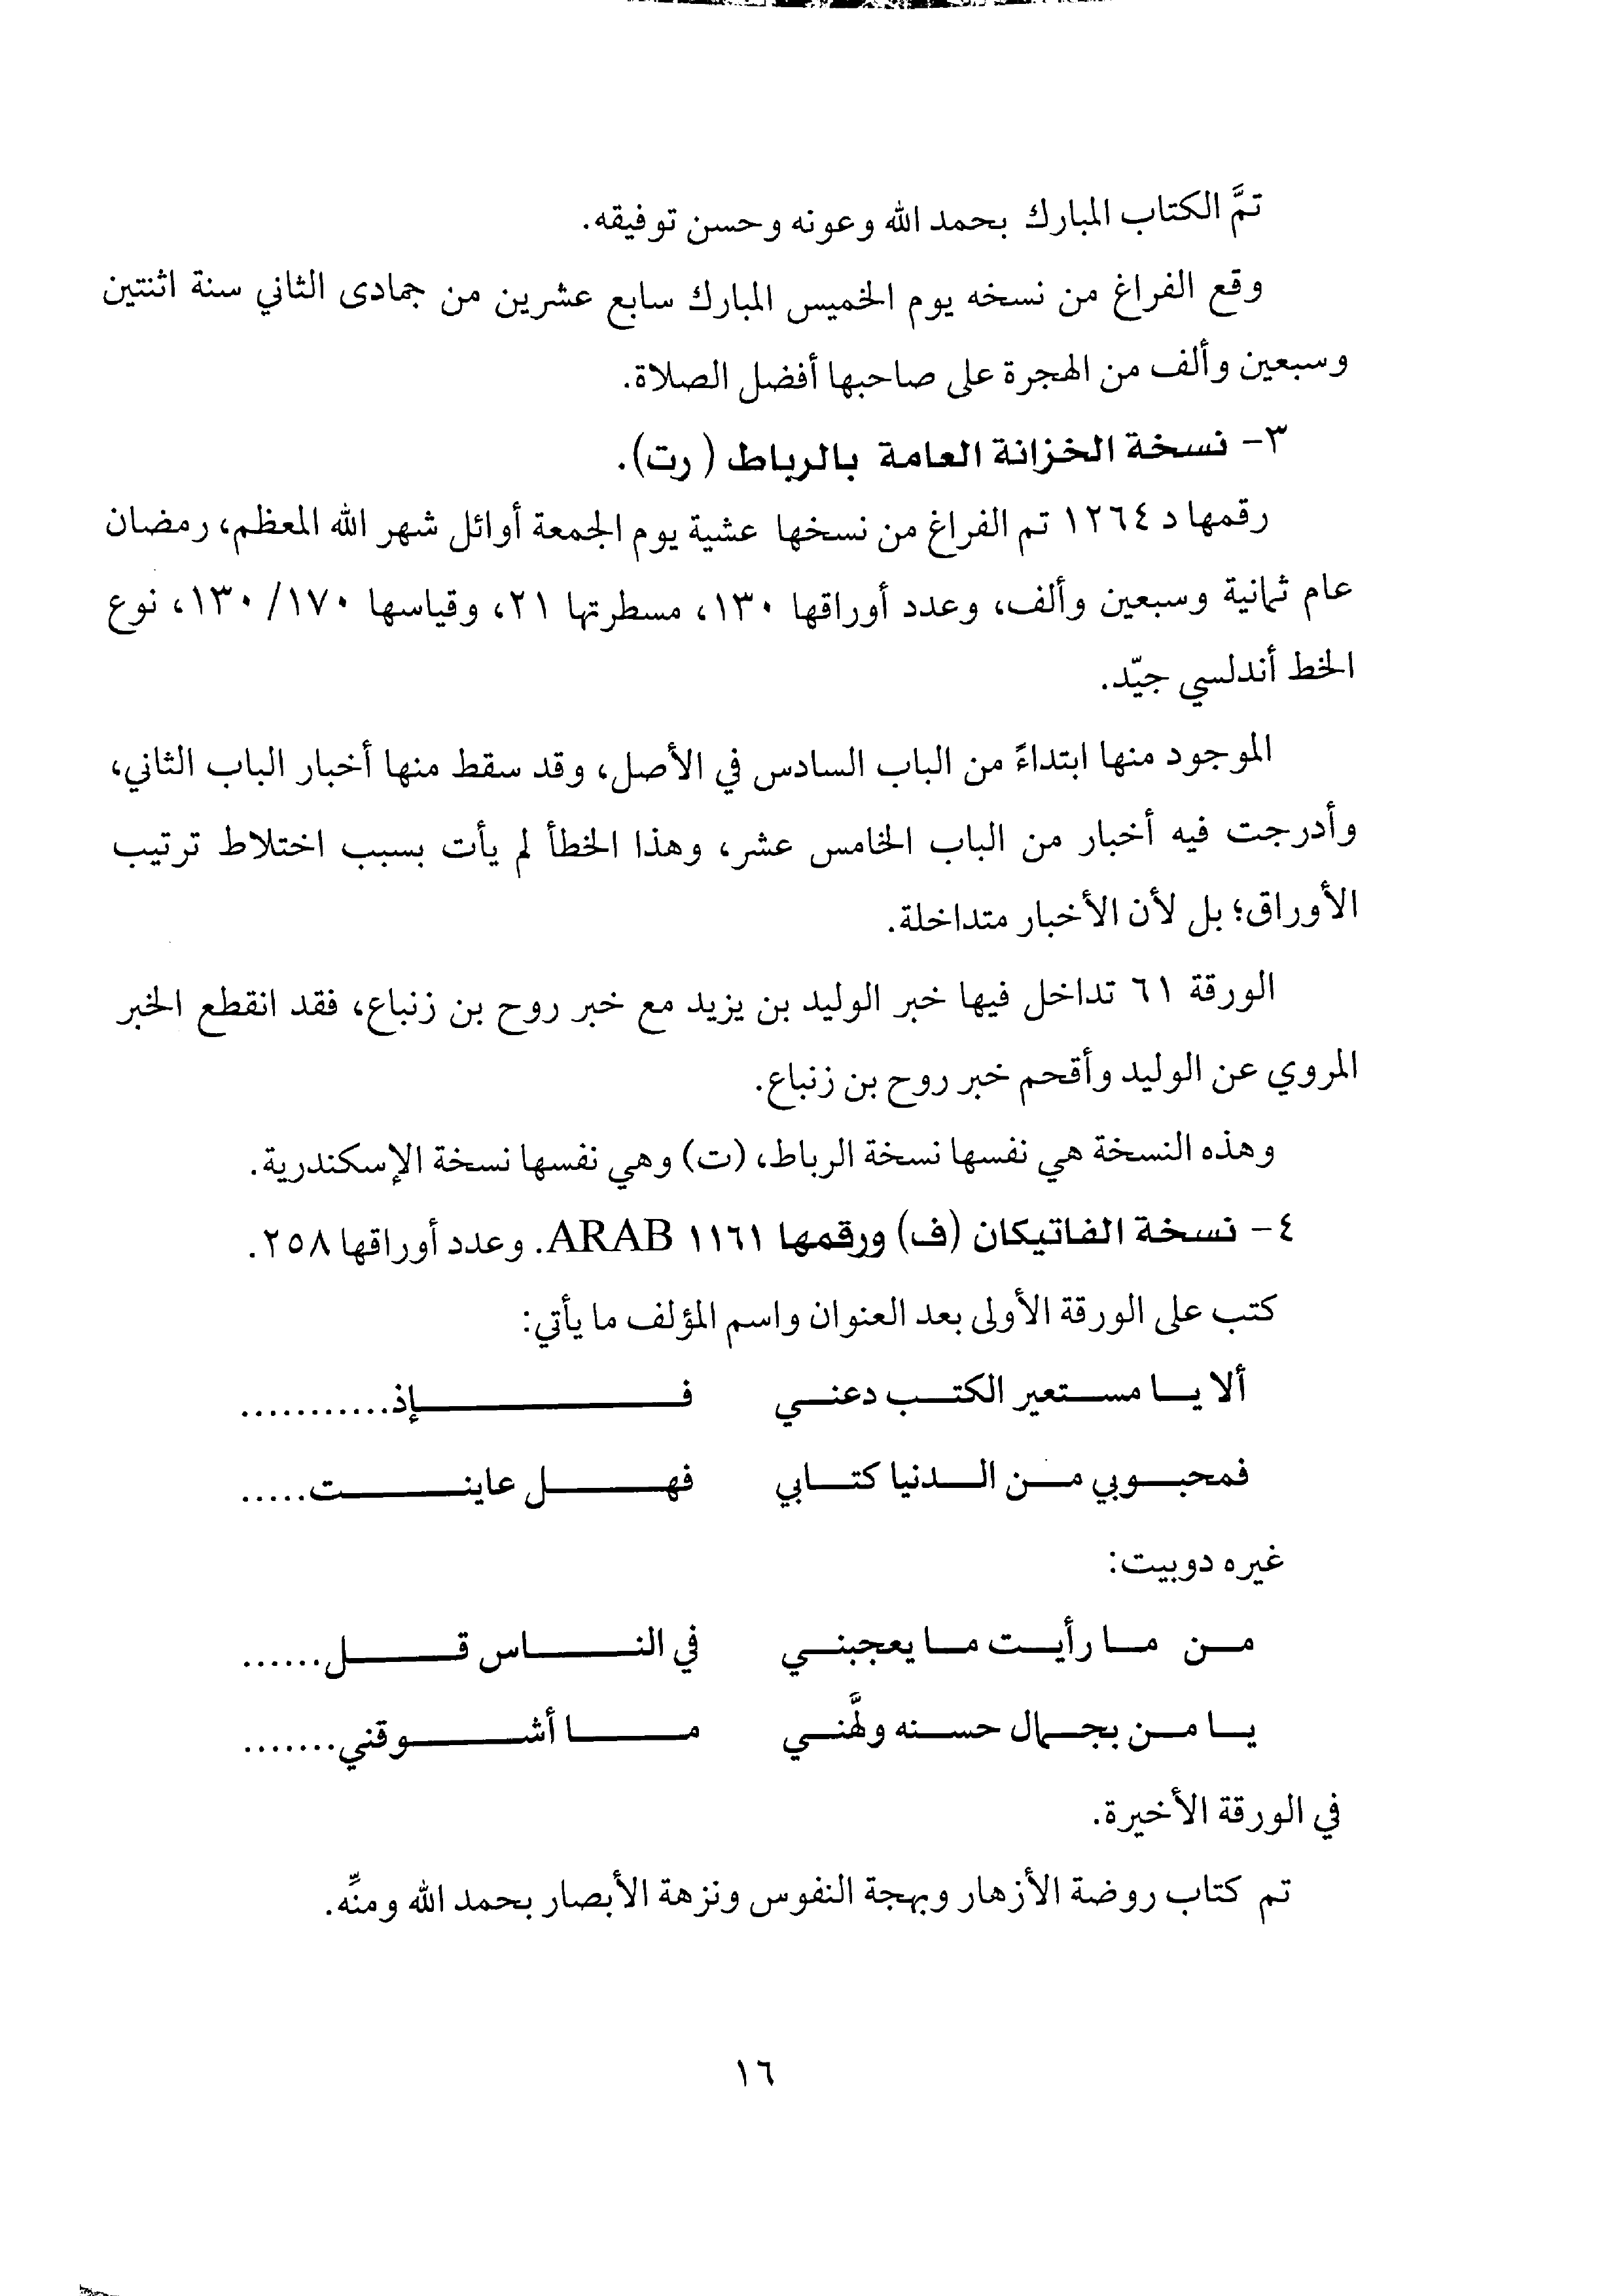 تمَّ الكتاب المبارك بحمد الله وعونه وحسن توفيقه.
وقع الفراغ من نسخه يوم الخميس المبارك سابع عشرين من جمادى الثاني سنة اثنتين
وسبعين وألف من الهجرة على صاحبها أفضل الصلاة.
٣- نسخة الخزانة العامة بالرباط (رت).
رقمها د ١٢٦٤ تم الفراغ من نسخها عشية يوم الجمعة أوائل شهر الله المعظم، رمضان
عام ثمانية وسبعين وألف، وعدد أوراقها ١٣٠، مسطرتها ٢١، وقياسها ١٧٠/ ١٣٠، نوع
الخط أندلسي جيّد.
الموجود منها ابتداءً من الباب السادس في الأصل، وقد سقط منها أخبار الباب الثاني،
وأدرجت فيه أخبار من الباب الخامس عشر، وهذا الخطأ لم يأت بسبب اختلاط ترتيب
الأوراق؛ بل لأن الأخبار متداخلة.
الورقة ٦١ تداخل فيها خبر الوليد بن يزيد مع خبر روح بن زنباع، فقد انقطع الخبر
المروي عن الوليد وأقحم خبر روح بن زنباع.
وهذه النسخة هي نفسها نسخة الرباط، (ت) وهي نفسها نسخة الإسكندرية.
٤- نسخة الفاتيكان (ف) ورقمها ١١٦١ ARAB. وعدد أوراقها ٢٥٨.
كتب على الورقة الأولى بعد العنوان واسم المؤلف ما يأتي:
ألا يـا مسـتعير الكتـب دعنـي فـــــإذ...........
فمحبـوبي مـن الـدنيا كتـابي فهــــل عاينــــت.....
غيره دوبيت:
مـن مـا رأيـت مـا يعجبنـي في النـــاس قـــل......
يـا مـن بجـمال حسـنه ولَّهنـي مـــا أشـــوقني.......
في الورقة الأخيرة.
تم كتاب روضة الأزهار وبهجة النفوس ونزهة الأبصار بحمد الله ومنِّه.
١٦